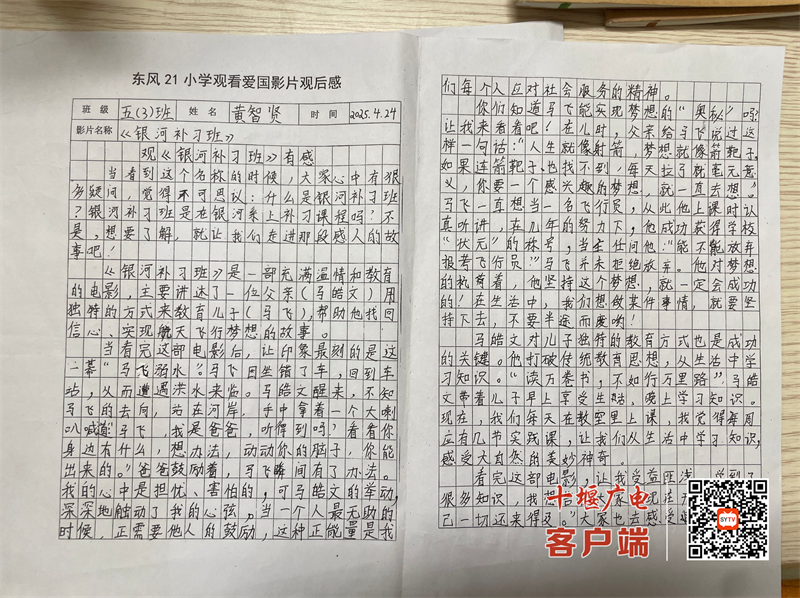 东风21小学观看爱国影片观后感
班级 五(3)班 姓名 黄智贤 时间 2025.4.24
影片名称 《银河补习班》
观《银河补习班》有感
当看到这个名称的时候,大家心中有很
多疑问,觉得不可思议:什么是银河补习班
?银河补习班是在银河系上补习课程吗?不
是,想要了解,就让我们走进那段感人的故
事吧!
《银河补习班》是一部充满温情和教育
的电影,主要讲述了一位父亲(马皓文)用
独特的方式来教育儿子(马飞),帮助他找回
信心、实现航天飞行梦想的故事。
当看完这部电影后,让印象最刻的是这
一幕“马飞溺水”。马飞因坐错了车,回到车
站,从而遭遇洪水来临。马皓文醒来,不知
马飞的去向,站在河岸,手中拿着一个大喇
叭喊道:马飞,我是爸爸,听得到吗?看看你
身边有什么,想办法,动动你的脑子,你能
出来的。”爸爸鼓励着,马飞瞬间有了办法。
我的心中是担忧、害怕的,可马皓文的举动,
深深地触动了我的心弦。当一个人最无助的
时候,正需要他人的鼓励,这种正能量是我
们每个人应对社会服务的精神。
你们知道马飞能实现梦想的“奥秘”吗?
让我来看看吧!在儿时,父亲给马飞说过这
样一句话:“人生就像射箭,梦想就像箭靶子,
如果连箭靶子也找不到,每天拉弓就毫无意
义,你要一个感兴趣的梦想,就一直去想。”
马飞一直想当一名飞行员,从此他上课时认
真听讲,在几年的努力下,他成功获得学校
“状元”的称号,当主任问他:“能不能放弃
报考飞行员”马飞并未拒绝放弃。他对梦想
的执着着,他坚持这个梦想,就一定会成功
的!在生活中,我们想做某件事情,就要坚
持下去,不要半途而废哟!
马皓文对儿子独特的教育方式也是成功
的关键。他打破传统教育思想,从生活中学
习知识。“读万卷书,不如行万里路”,马皓
文带着儿子早上享受生活,晚上学习知识。
现在,我们每天在教室里上课,我觉得每周
应有几节实践课,让我们从生活中学习知识,
感受大自然的美妙神奇。
看完这部电影,让我受益匪浅,学到了
很多知识,我想告
己一切还来得及。”大家也去感受
十堰广电
客户端
SYTV